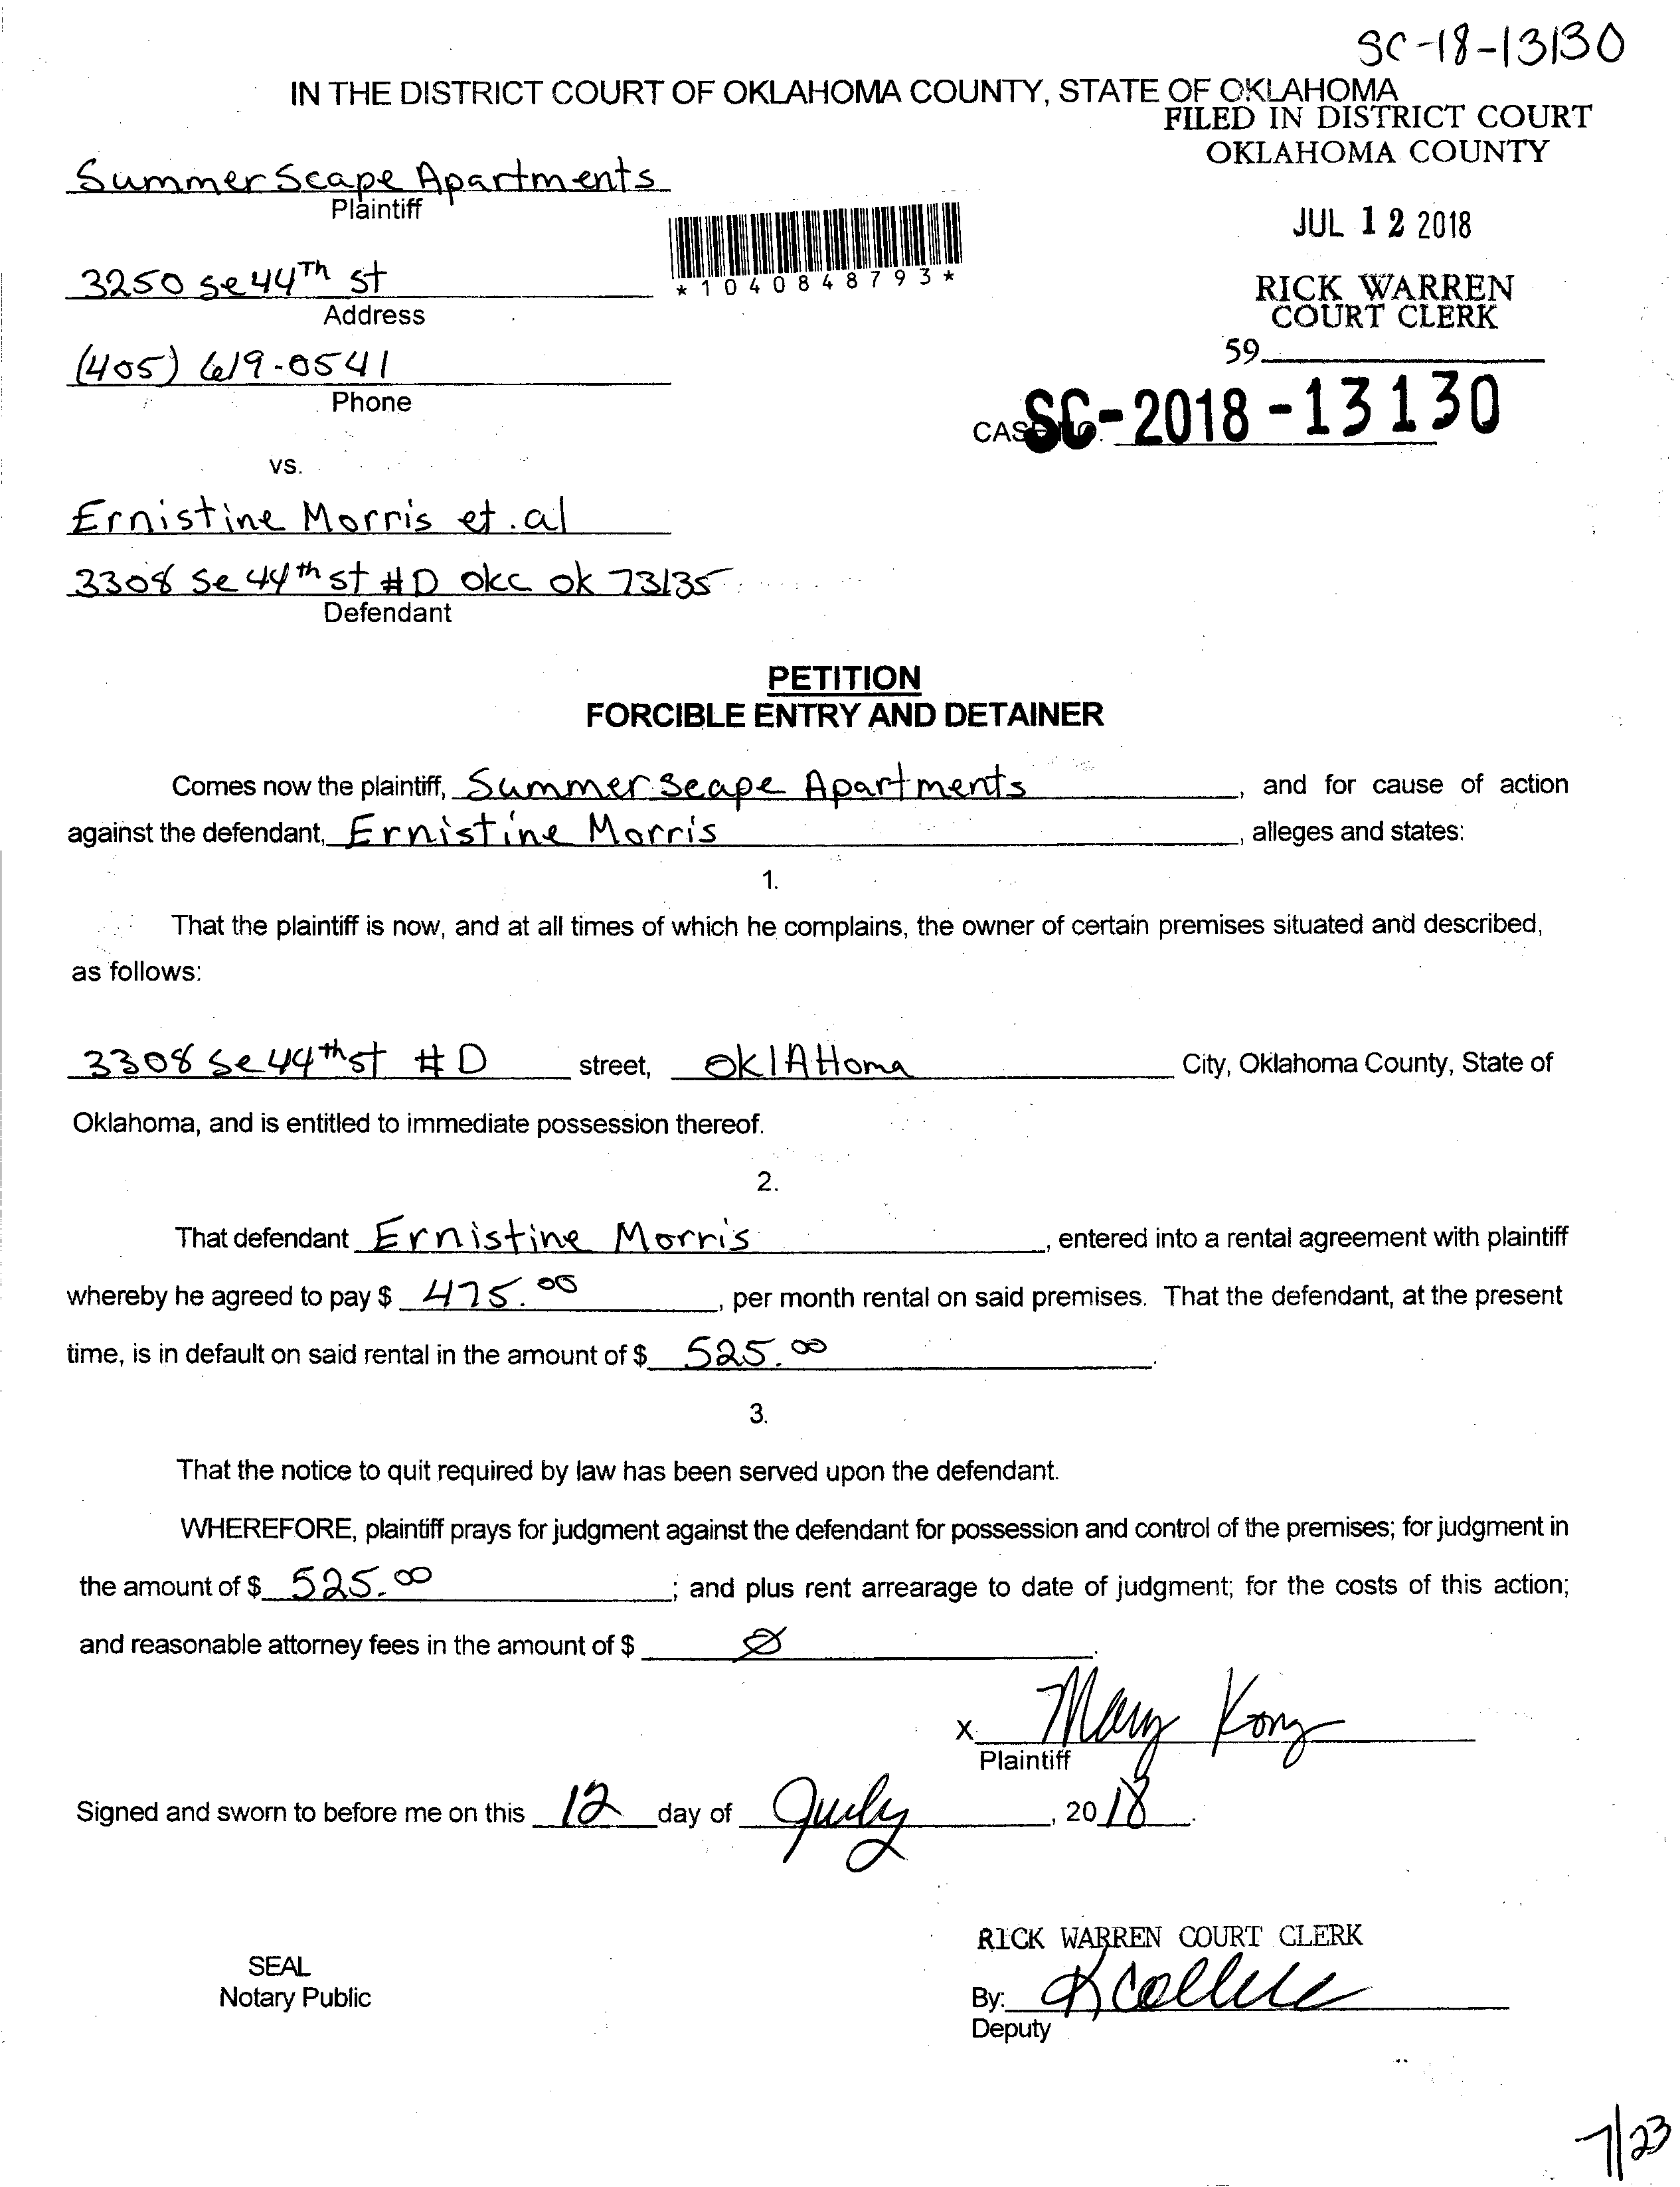 SC-18-13130
IN THE DISTRICT COURT OF OKLAHOMA COUNTY, STATE OF OKLAHOMA
FILED IN DISTRICT COURT
OKLAHOMA COUNTY
Summer Scape Apartments
Plaintiff
JUL 12 2018
*1040848793*
3250 se 44Th st
Address
RICK WARREN
COURT CLERK
59
(405) 619-0541
Phone
CASE NO. SC-2018-13130
vs.
Ernistine Morris et.al
3308 Se 44th st #D okc ok 73135
Defendant
PETITION
FORCIBLE ENTRY AND DETAINER
Comes now the plaintiff, Summer Scape Apartments, and for cause of action
against the defendant, Ernistine Morris, alleges and states:
1.
That the plaintiff is now, and at all times of which he complains, the owner of certain premises situated and described,
as follows:
3308 Se 44th st #D street, OklAHoma City, Oklahoma County, State of
Oklahoma, and is entitled to immediate possession thereof.
2.
That defendant Ernistine Morris, entered into a rental agreement with plaintiff
whereby he agreed to pay $ 475.00, per month rental on said premises. That the defendant, at the present
time, is in default on said rental in the amount of $ 525.00.
3.
That the notice to quit required by law has been served upon the defendant.
WHEREFORE, plaintiff prays for judgment against the defendant for possession and control of the premises; for judgment in
the amount of $ 525.00; and plus rent arrearage to date of judgment; for the costs of this action;
and reasonable attorney fees in the amount of $ Ø.
X Mary Kong
Plaintiff
Signed and sworn to before me on this 12 day of July, 2018.
RICK WARREN COURT CLERK
SEAL
Notary Public
By:
Deputy
7/23